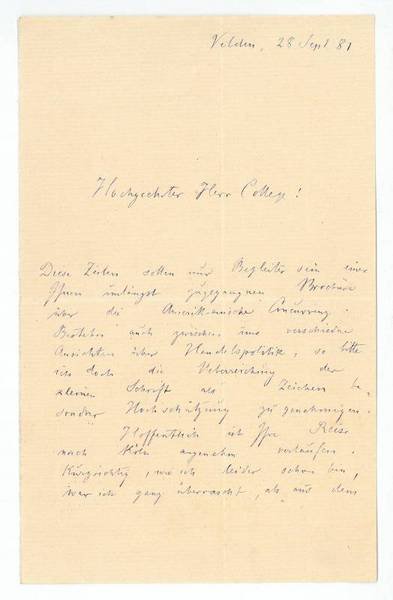 Velden, 28 Sept 81
Hochgeehrter Herr College!
Diese Zeilen sollen nur Begleiter sein einer
Ihnen unlängst zugegangenen Brochüre
über die Amerikanische Concurrenz.
Bestehen auch zwischen uns verschiedene
Ansichten über Handelspolitik, so bitte
ich doch die Ueberreichung der
kleinen Schrift als Zeichen be-
sonderer Hochschätzung zu genehmigen.
Hoffentlich ist Ihre Reise
nach Köln angenehm verlaufen.
Kurzsichtig, wie ich leider schon bin,
war ich ganz überrascht, als aus dem